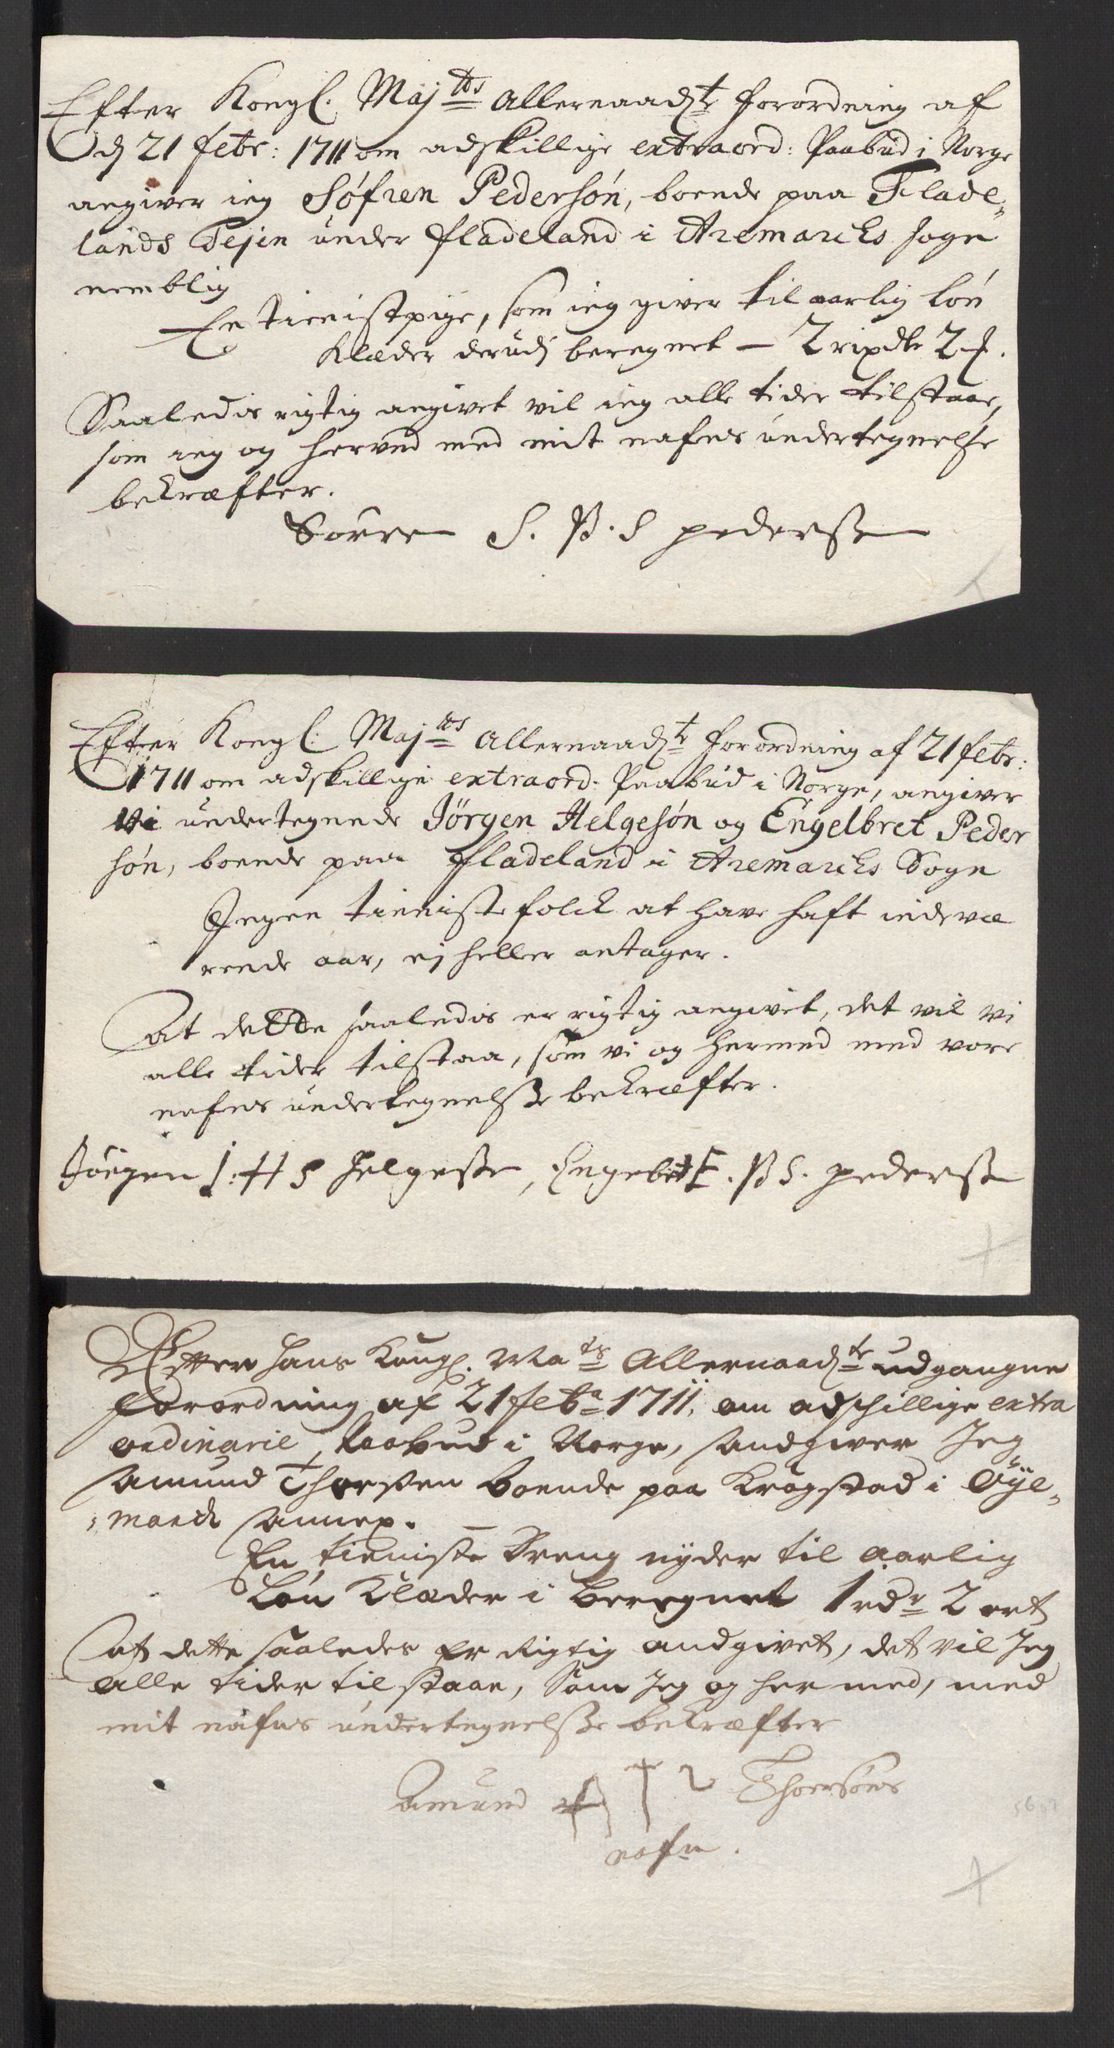 Efter Kongl. Maj:ts Allernaadste forordning af
d. 21 febr: 1711 om adskillige extraord: Paabud i Norge
angiver ieg Søfren Pedersøn, boende paa Flade-
lands Tejen under fladeland i Aremarcks sogn
nemblig
En tienistpige, som ieg giver til aarlig løn
Klæder derudj beregnet — 2 rixdlr 2
Saaledis rigtig angivet vil ieg alle tider tilstaae,
som ieg og herved med mit nafns undertegnelse
bekræfter.
Sørren S. P. S pederss
Efter Kongl: Maj:ts Allernaadste forordning af 21 febr:
1711 om adskillige extraord. Paabud i Norge, angiver
Vi undertegnede Jörgen Helgesøn og Engelbret Peder
søn, boende paa fladeland i Aremarcks Sogn
Ingen tienistefolck at have haft indevæ
rende aar, ej heller antager.
At dette saaledis er rigtig angivet, det vil vi
alle tider tilstaa, som vi og hermed med vore
nafns undertegnelsse bekræfter.
Jörgen I. H S Helgess, Engebret E. P S. pederss
Effter Hans Kongl. Ma:ts Allernaadste udgangne
forordning af 21 feb:a 1711, om adschillige extra
ordinarie Paabud i Norge, andgiver Jeg
Amund Thorsen boende paa Krogstad i Øije-
marck Annex.
En tieniste Dreng nyder til aarlig
Løn Klæder i beregnet 1 rdr 2 ort
At dette saaledes er Rigtig andgivet, det vil Jeg
alle tider tilstaae, Som Jeg og her med, med
mit nafns undertegnelsse bekræfter
Amund Thorsøns
nafn.